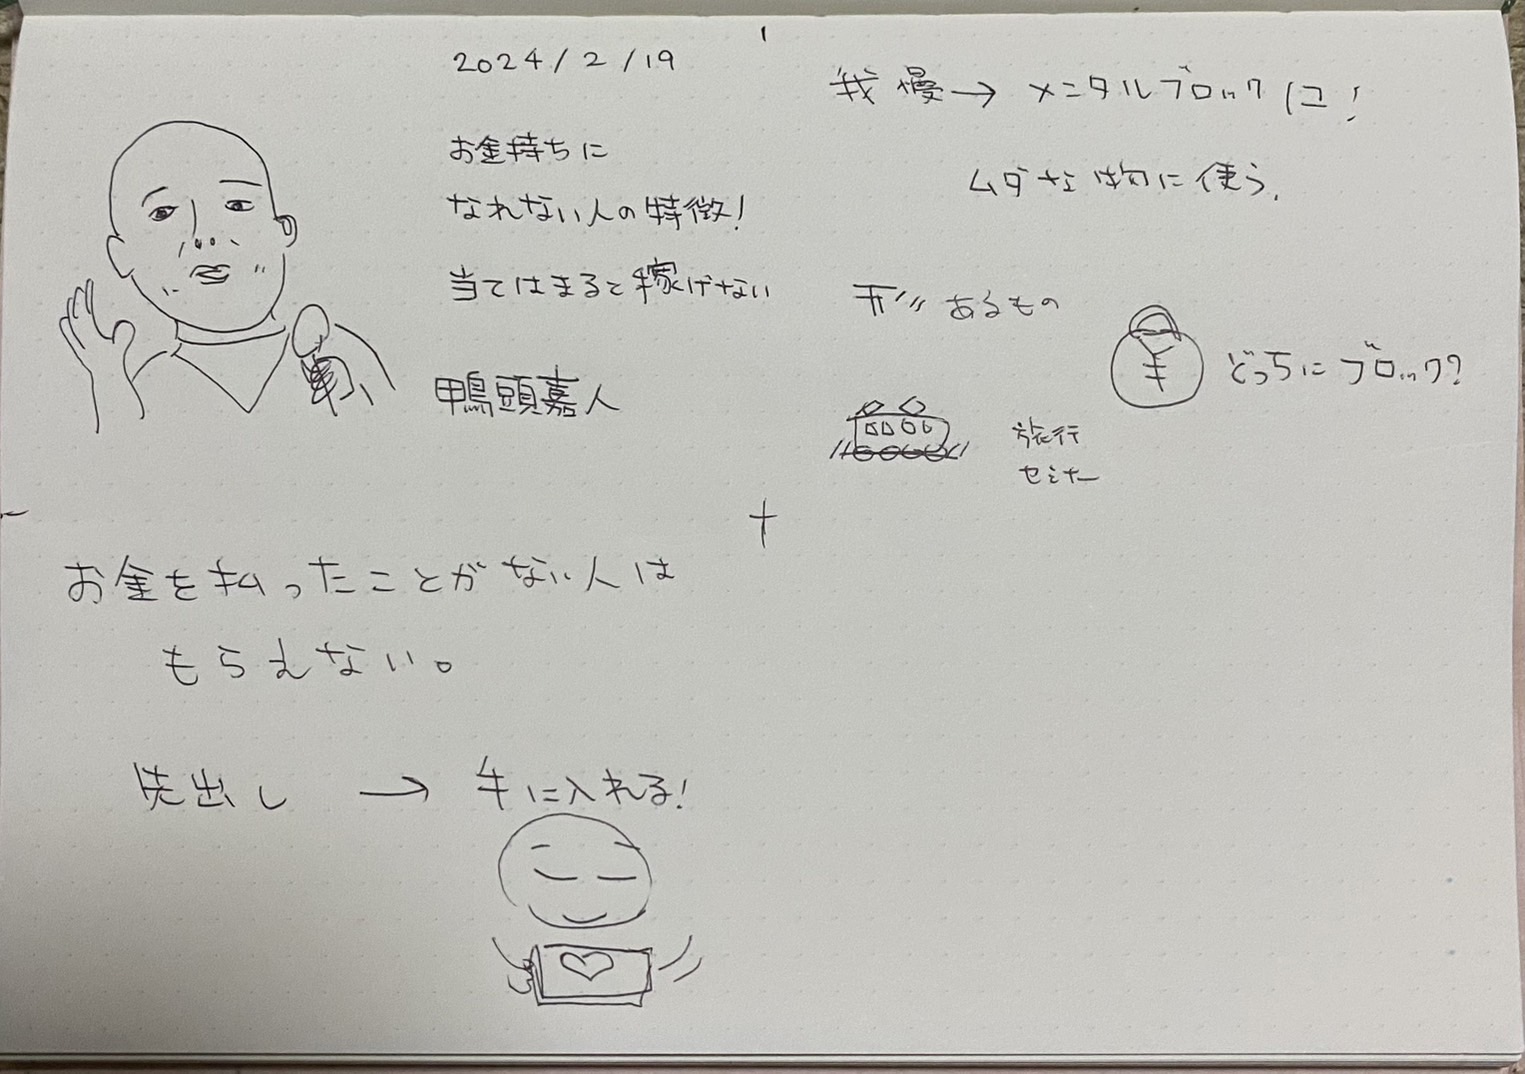 2024/2/19
お金持ちに
なれない人の特徴!
当てはまると稼げない
鴨頭嘉人
お金を払ったことがない人は
もらえない。
先出し → 手に入れる!
我慢→メンタルブロックに!
ムダな物に使う.
形あるもの
¥ どっちにブロック?
旅行
セミナー